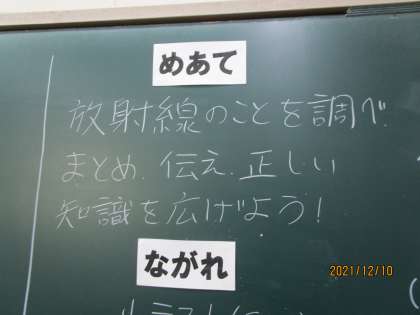 めあて
放射線のことを調べ
まとめ.伝え.正しい
知識を広げよう!
ながれ
2021/12/10